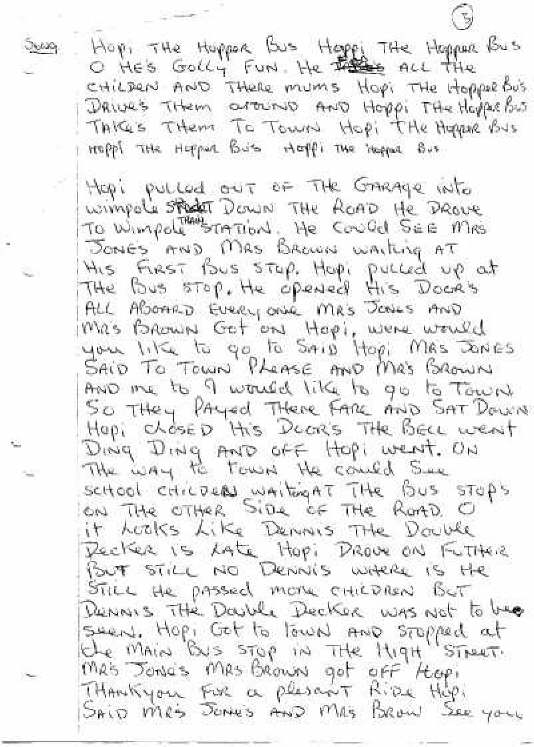 3
Song Hopi THE Hopper Bus Hoppi THE Hopper Bus
O HE'S GOLLY FUN. HE ALL THE
CHILDREN AND THERE MUMS HOPI THE HOPPER BUS
DRIVE'S THEM AROUND AND HOPPI THE HOPPER BUS
TAKE'S THEM TO TOWN HOPI THE HOPPER BUS
HOPPI THE HOPPER BUS HOPPI THE HOPPER BUS
Hopi pulled out of THE GARAGE into
wimpole STREET DOWN THE ROAD HE DROVE
TO WIMPOLE TRAIN STATION. HE COULD SEE MRS
JONES AND MRS BROWN WAITING AT
HIS FIRST BUS STOP. Hopi pulled up at
THE BUS STOP. HE OPENED HIS DOOR'S
ALL ABOARD EVERYONE MR'S JONES AND
MR'S BROWN GOT ON HOPI, WERE WOULD
you like to go to SAID Hopi MRS JONES
SAID TO TOWN PLEASE AND MR'S BROWN
AND me to I would like to go to TOWN
SO THEY PAYED THERE FARE AND SAT DOWN
HOPI CLOSED HIS DOOR'S THE BELL WENT
DING DING AND OFF HOPI WENT. ON
THE WAY to town HE could SEE
SCHOOL CHILDREN WAITING AT THE BUS STOPS
ON THE OTHER SIDE OF THE ROAD. O
it Looks Like DENNIS THE Double
DECKER IS LATE HOPI DROVE ON FUTHER
BUT STILL NO DENNIS WHERE IS HE
STILL HE PASSED MORE CHILDREN BUT
DENNIS THE Double DECKER WAS NOT to be
seen. Hopi Got to town AND STOPPED at
the MAIN BUS STOP IN THE HIGH STREET.
MR'S JONE'S MRS BROWN got OFF Hopi
THANKYOU FOR a plesant RIDE Hopi
SAID MR'S JONES AND MRS BROW SEE you